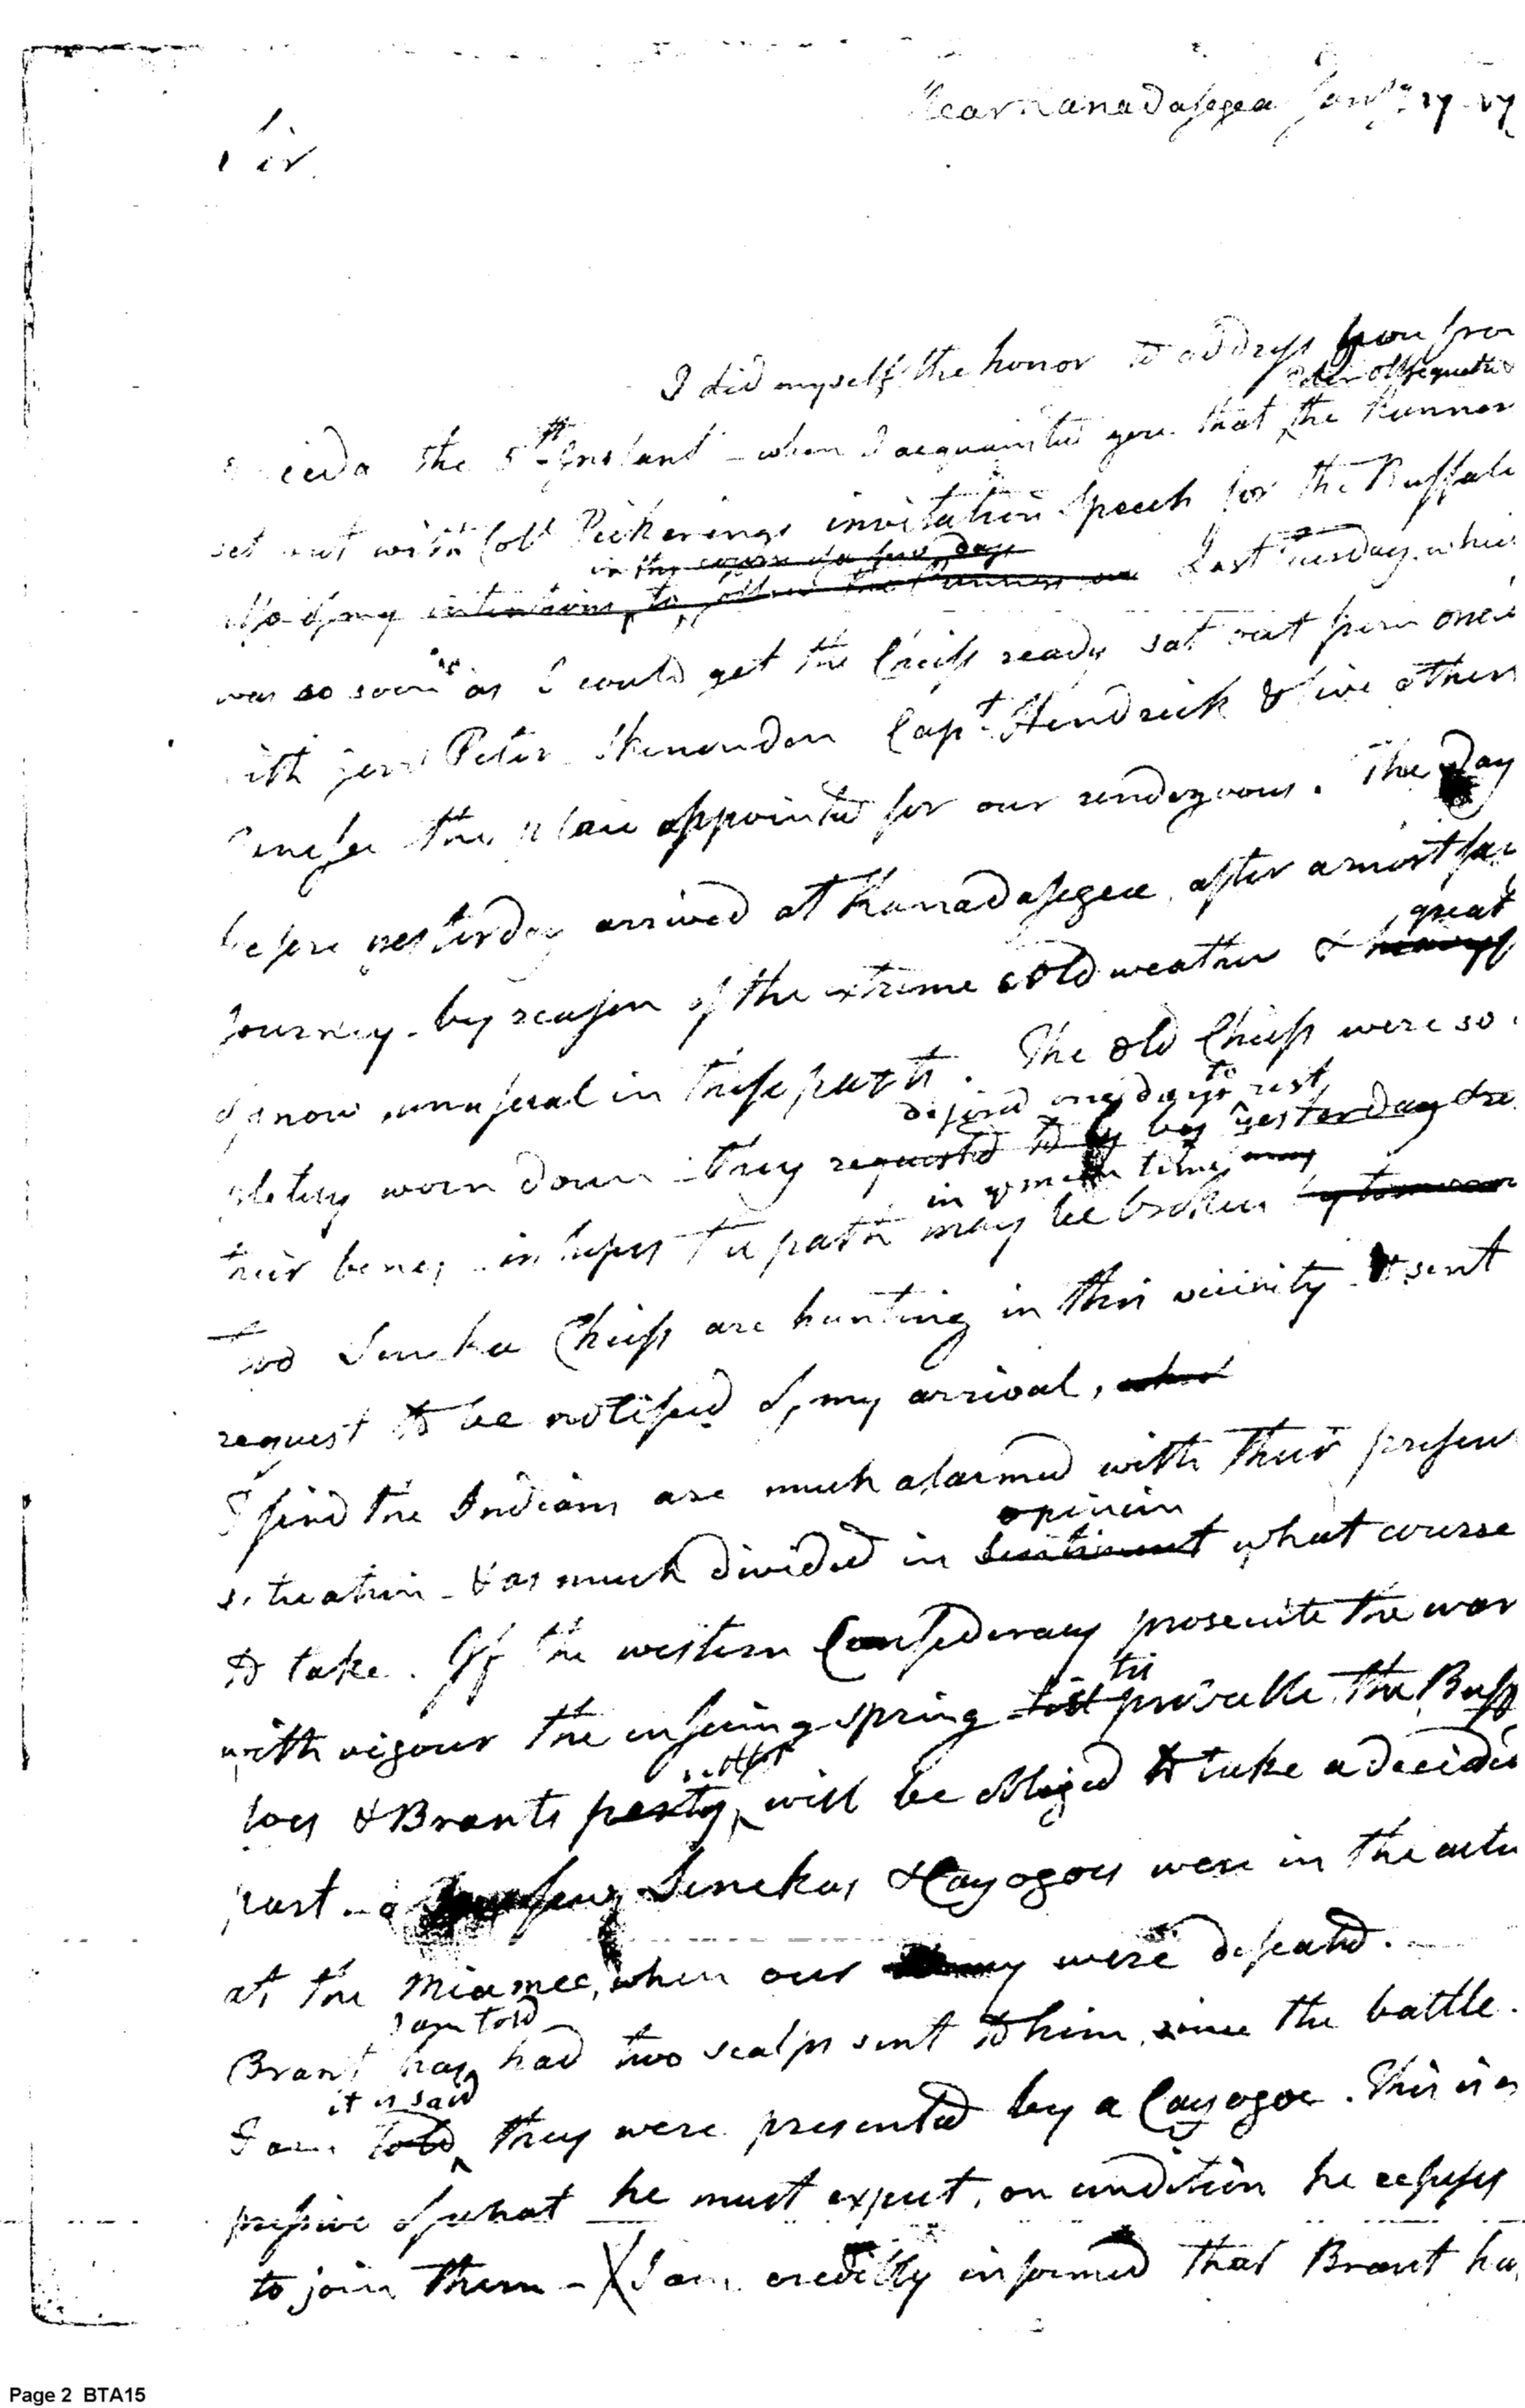 Near Kanadasegea Jany 27 17
Sir.
I did myself the honor to address you from
Peter Otsequette
the 5th Instant - when I acquainted you that the Runner
set out with Colo Pickerings invitation Speech for the Buffalo
in the course of a few days
also of my intentions to follow the Runners Last Tuesday. which
was so soon as I could get the Chiefs ready sat out from
with Peter Skenendon Capt. Hendrick & five others
the place appointed for our rendezvous. The Day
before yesterday arrived at Kanadasegea, after a most
great
Journey - by reason of the extreme cold weather & heavy
of snow, unusual in these parts. The old Chiefs were so
desired one day to rest
pletely worn down - they requested to yesterday
in mean time may
their bones, in hopes the path may be broken by tomorrow
Two Seneka Chiefs are hunting in this vicinity & sent
request to be notified of my arrival,
I find the Indians are much alarmed with their present
opinion
situation - & as much divided in sentiment what course
to take. If the western Confederacy prosecute the war
with vigour the ensuing spring provable the Buff
loes & Brants party, will be obliged to take a decided
part. - a few Senekas & Cayogoes were in the
at the Miamee, when our were defeated. -
I am told
Brant has had two scalps sent to him, since the battle.
it is said
I am told they were presented by a Cayogoe. This is
pressive of what he must expect, on condition he refuses
to join them - X I am credibly informed that Brant
Page 2 BTA15